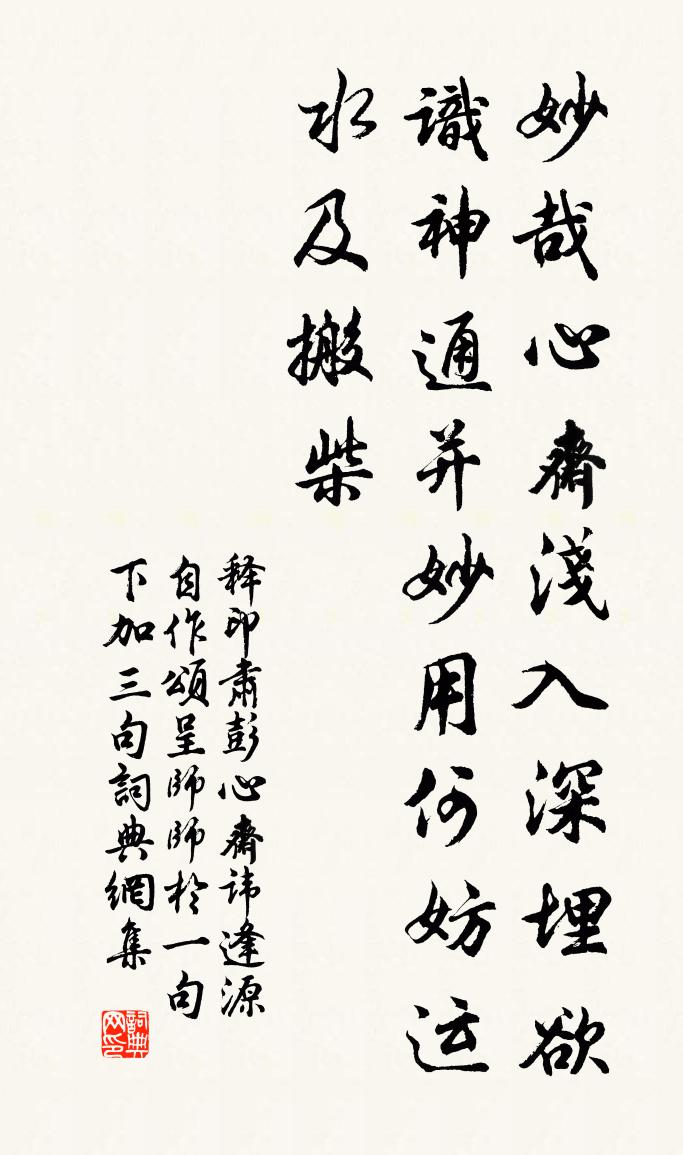 妙哉心齋淺入深埋欲
識神通并妙用何妨运
水及搬柴
释印肃彭心齋讳逢源
自作頌呈師師於一句
下加三句詞典網集
詞典网印